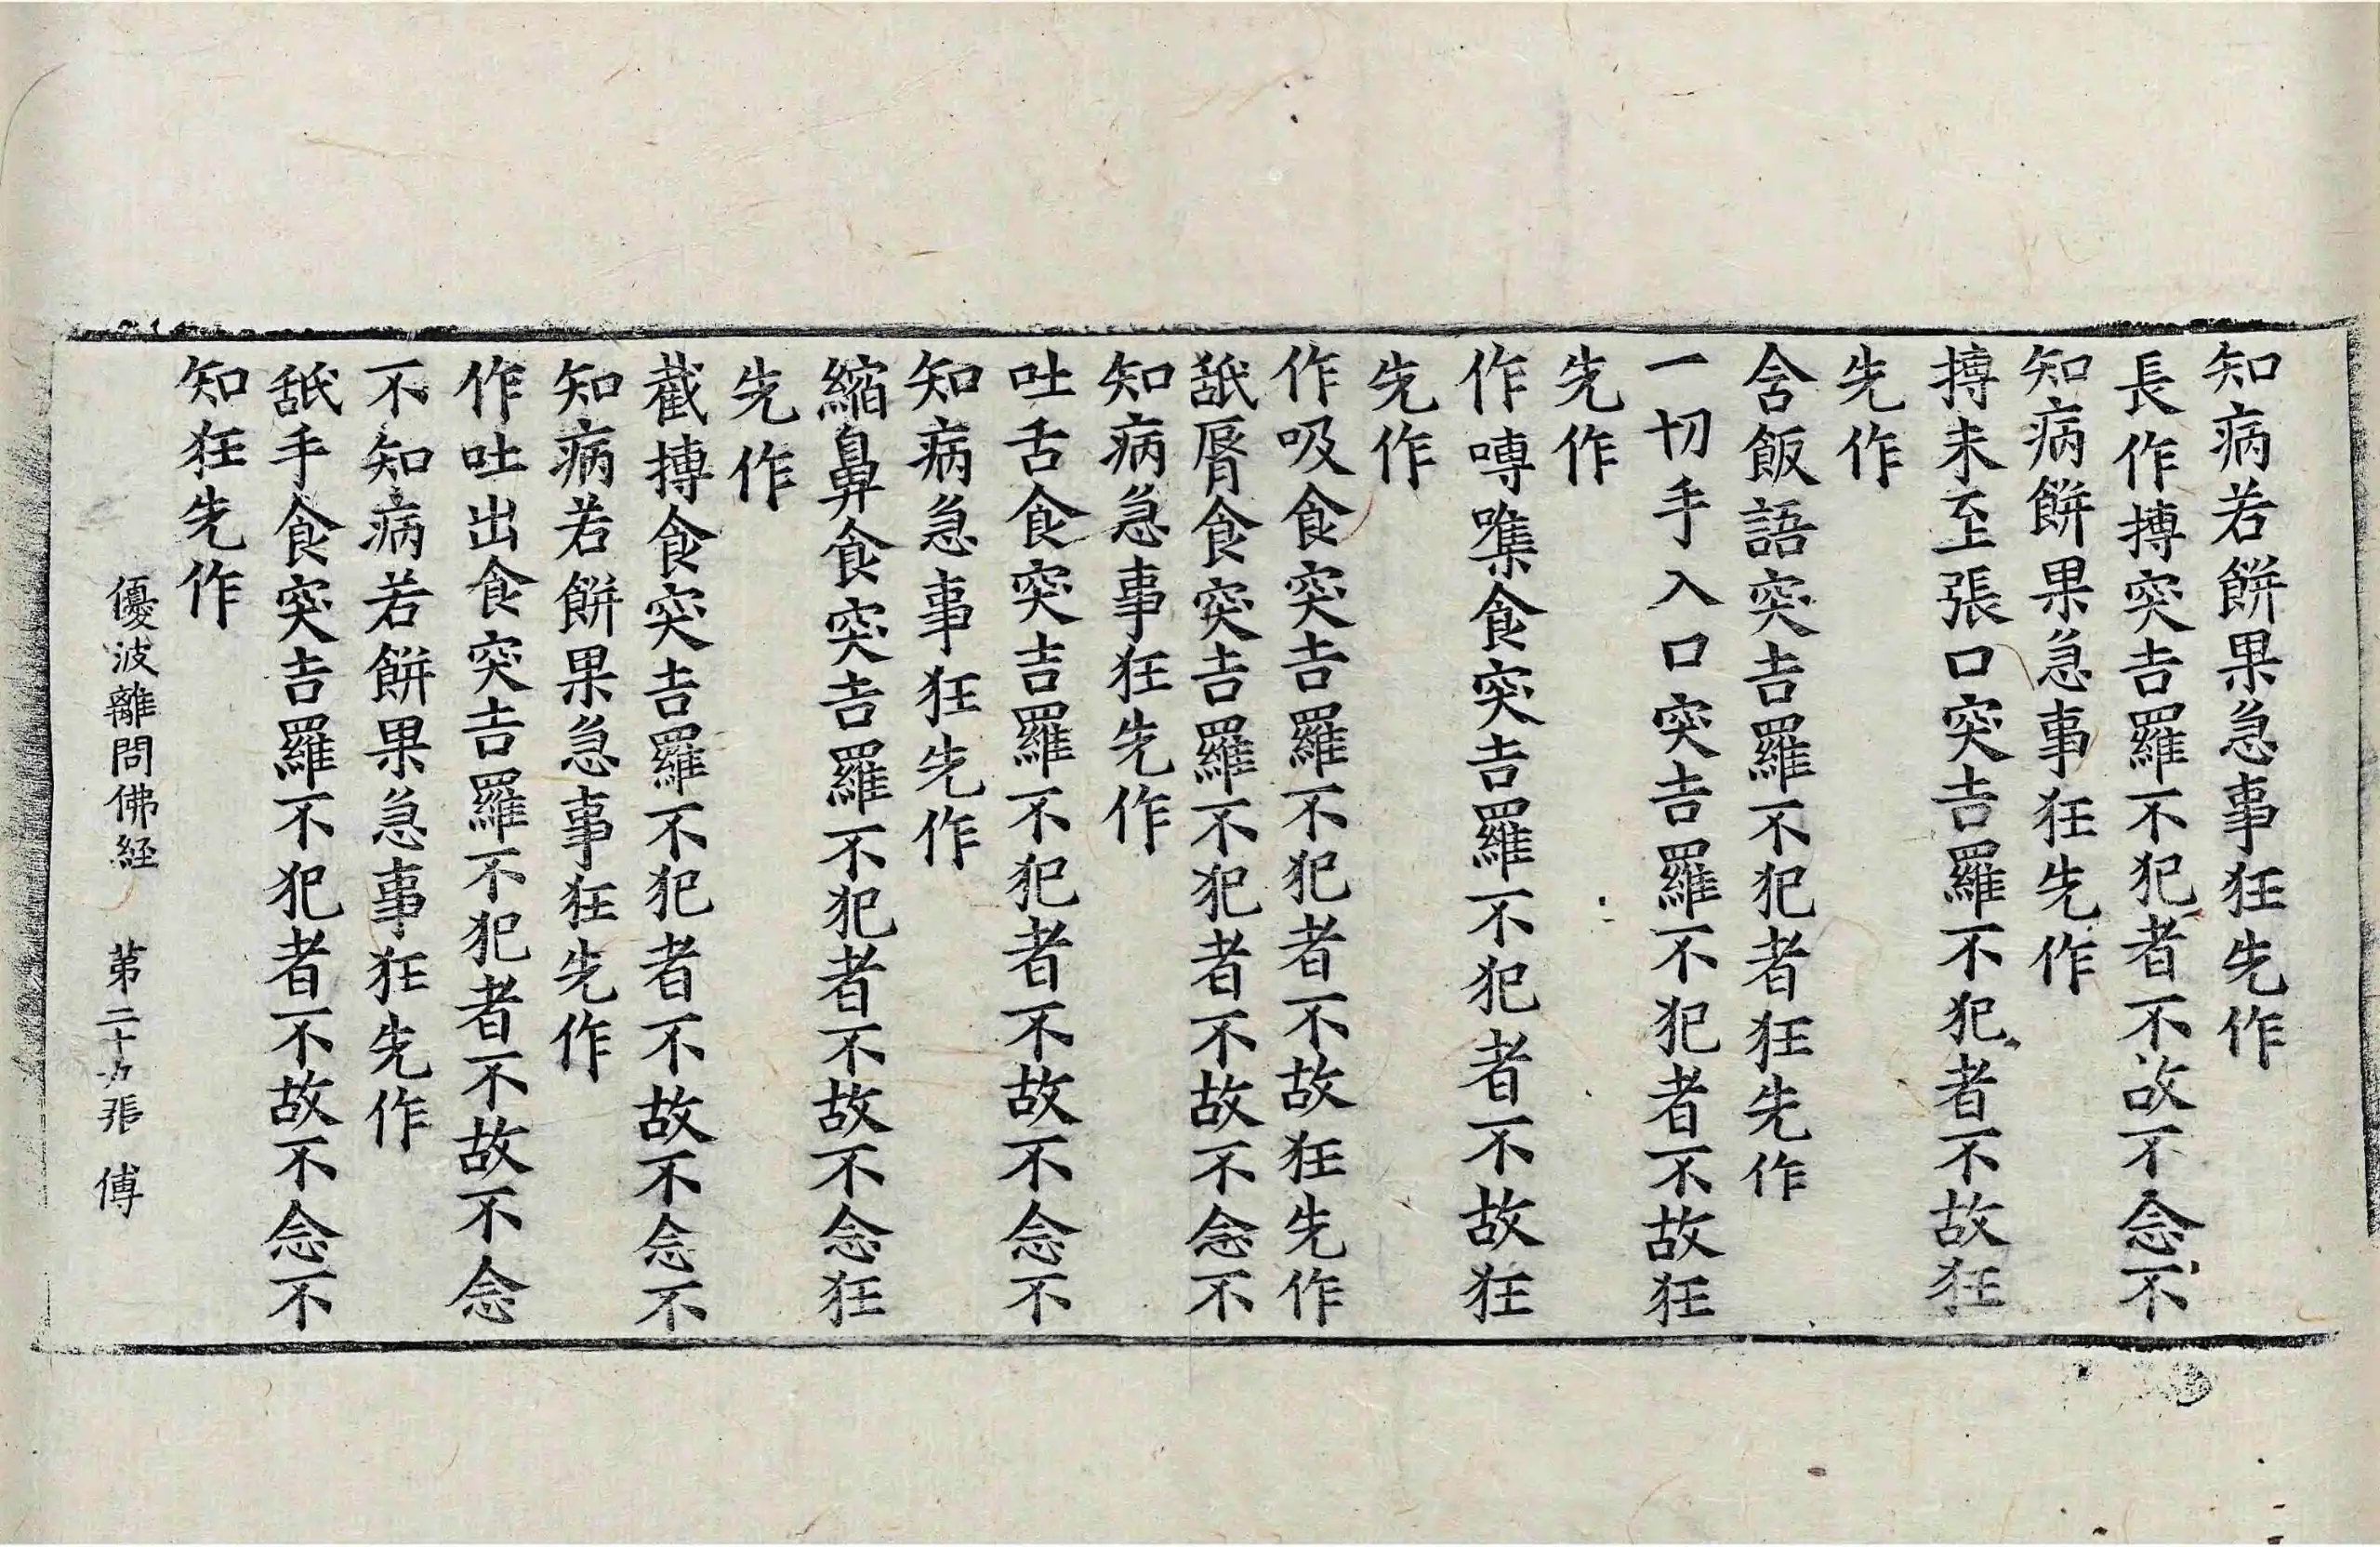 知病若餅果急事狂先作
長作摶突吉羅不犯者不故不念不
知病餅果急事狂先作
摶未至張口突吉羅不犯者不故狂
先作
含飯語突吉羅不犯者狂先作
一切手入口突吉羅不犯者不故狂
先作
作嘑噍食突吉羅不犯者不故狂
先作
作吸食突吉羅不犯者不故狂先作
舐脣食突吉羅不犯者不故不念不
知病急事狂先作
吐舌食突吉羅不犯者不故不念不
知病急事狂先作
縮鼻食突吉羅不犯者不故不念狂
先作
截摶食突吉羅不犯者不故不念不
知病若餅果急事狂先作
作吐出食突吉羅不犯者不故不念
不知病若餅果急事狂先作
舐手食突吉羅不犯者不故不念不
知狂先作
優波離問佛経 第二十九張 傅